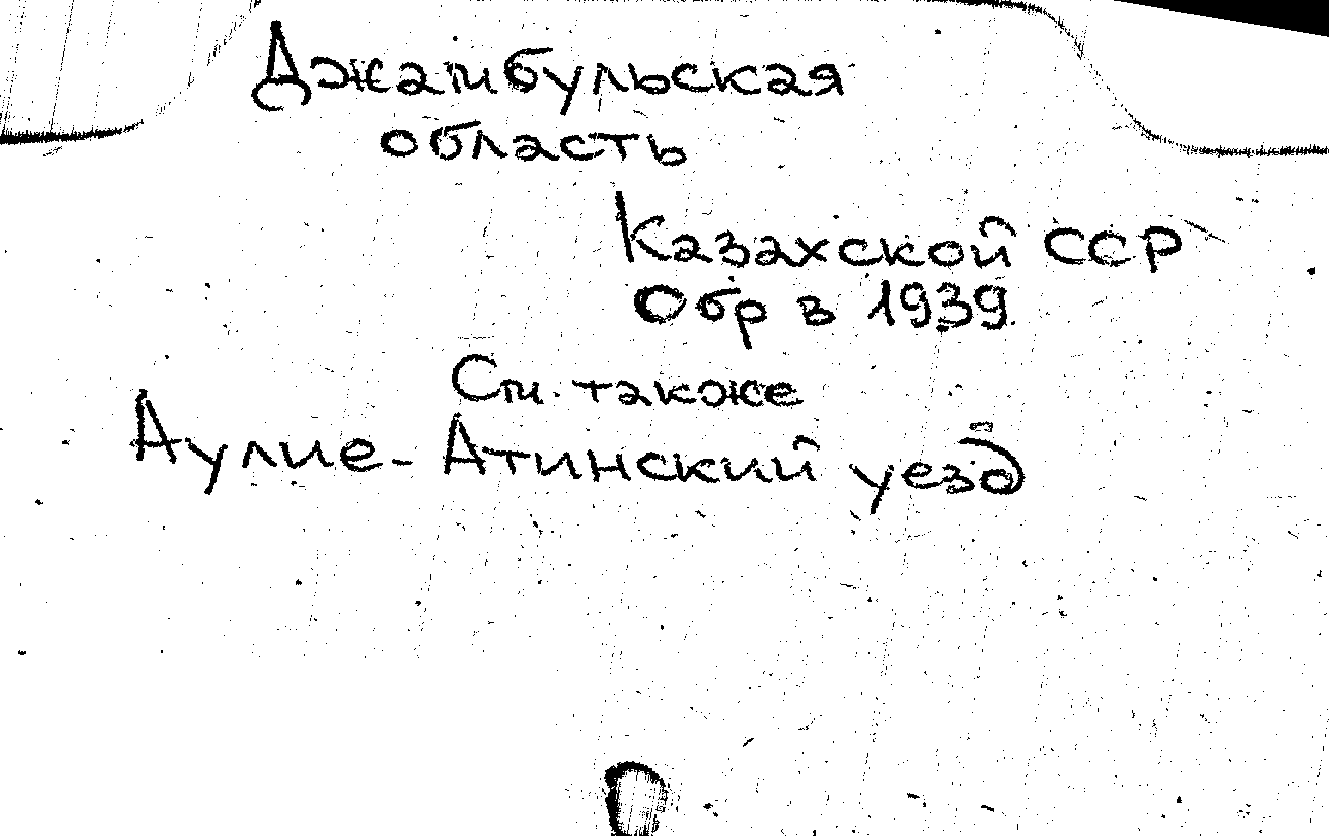 Джамбульская
область
Казахской ССР
Обр в 1939
См. также
Аулие-Атинский уезд